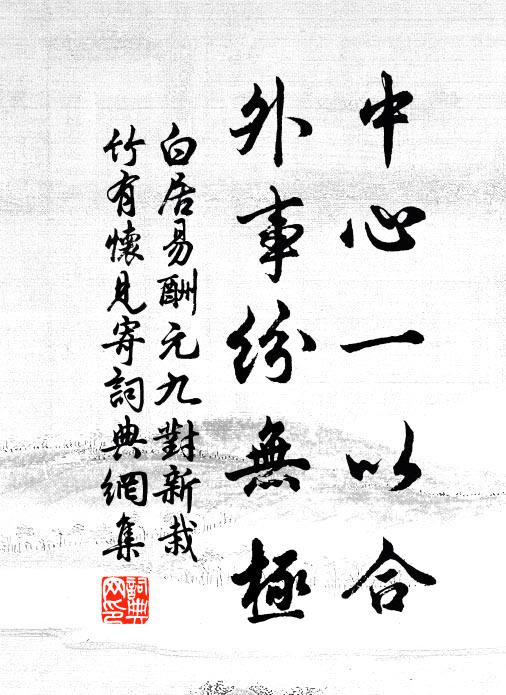 中心一以合
外事紛無極
白居易酬元九對新栽
竹有懷見寄詞典網集
詞典
网印